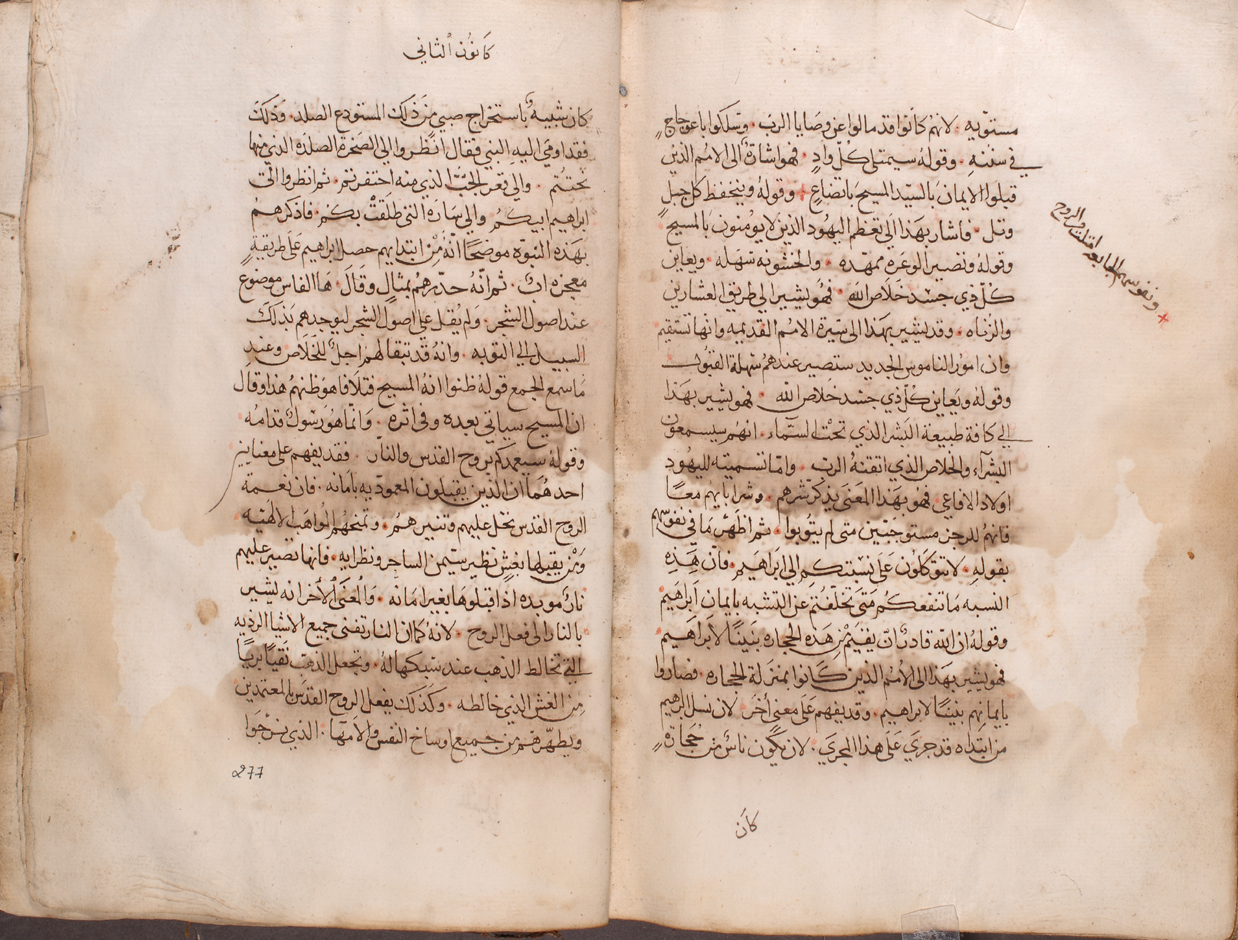 مستويه · لانهم كانوا قد مالوا عن وصايا الرب · وسلكوا باعوجاجٍ
في سننه · وقوله سيمتلي كلّ وادٍ · فهو اشارة الى الامم الذين
قبلوا الايمان بالسيد المسيح باتضاعٍ وقوله وينخفظ كل جبلٍ
وتل · فاشار بهذا الى تعظم اليهود الذين لا يومنون بالمسيح
وقوله وتصير الوعرة ممهده · والخشونه سهله · ويعاين
كلّ ذي جسد خلاص الله · فهو يشير الى طريق العشارين
والزناه · وقد يشير بهذا الى سيرة الامم القديمه وانها تستقيم
وان امور الناموس الجديد ستصير عندهم سهلة القبول
وقوله ويعاين كلّ ذي جسد خلاص الله · فهو يشير بهذا
الى كافة طبيعة البشر الذي تحت السماء · انهم سيسمعون
البشرآء والخلاص الذي اتقنه الرب · وامّا تسميته لليهود
اولاد الافاعي فهو بهذا المعنى يذكّر شرهم · وشر ابايهم معًا
فانهم للرجز مستوجبين متى لم يتوبوا · ثم اظهر ما في نفوسهم
بقوله · لا تتوكلون على نسبتكم الى ابراهيم · فان هذه
النسبه ما تنفعكم متى تخلفتم عن التشبه بايمان ابراهيم
وقوله ان الله قادرٌ ان يقيم من هذه الحجاره بنينًا لابراهيم
فهو يشير بهذا الى الامم الذين كانوا بمنزلة الحجاره · فصاروا
بايمانهم بنينًا لابراهيم · وقد يفهم على معنى أخر لان نسل ابراهيم
من ابتداه قد جرى على هذا المجرى · لان يكون ناسٌ من حجارةٍ
كان
ونفوسهم
والروح
كانون الثاني
كان شبيه باستخراج صبي من ذلك المستودع الصلد · وذلك
فقد اومى اليه النبي فقال انظروا الى الصخرة الصلده الذي منها
نحتتم · والى قعر الجبّ الذي منه احتفرتم · ثم انظروا الى
ابراهيم ابيكم والى ساره التي طلقت بكم · فاذكرهم
بهذه النبوه موضحًا انه من ابتدايهم حصل ابراهيم على طريقةٍ
معجزه اتٍ · ثم انّه حذّرهم بمثالٍ وقال · ها الفاس موضوع
عند اصول الشجر · ولم يقل على اصول الشجر ليوجدهم بذلك
السبيل الى التوبه · وانه قد تبقا لهم اجلٌ للخلاص وعند
ما سمع الجمع قوله ظنوا انه المسيح فتلافا هو ظنهم هذا وقال
ان المسيح سياتي بعده وفي اثره · وانما هو رسولٌ قدامه
وقوله سيعمدكم بروح القدس والنار · فقد يفهم على معنايين
احدهما ان الذين يقبلون المعموديه بامانه · فان نعمة
الروح القدس تحل عليهم وتنيرهم · وتمنحهم المواهب الالهيه
ومن يقبلها بغشٍ نظير سيمن الساحر ونظرايه · فانها تصير عليهم
نارٌ موبده اذا قبلوها بغير امانه · والمعنى الأخر انه يشير
بالنار الى فعل الروح · لانه كما ان النار تفنى جميع الاشيا الرديه
التي تخالط الذهب عند سبكها له · وتجعل الذهب نقيًا بريًا
من الغش الذي خالطه · وكذلك يفعل الروح القدس بالمعتمدين
ويطهرهم من جميع اوساخ النفس والامها · الذي نرجوا
277